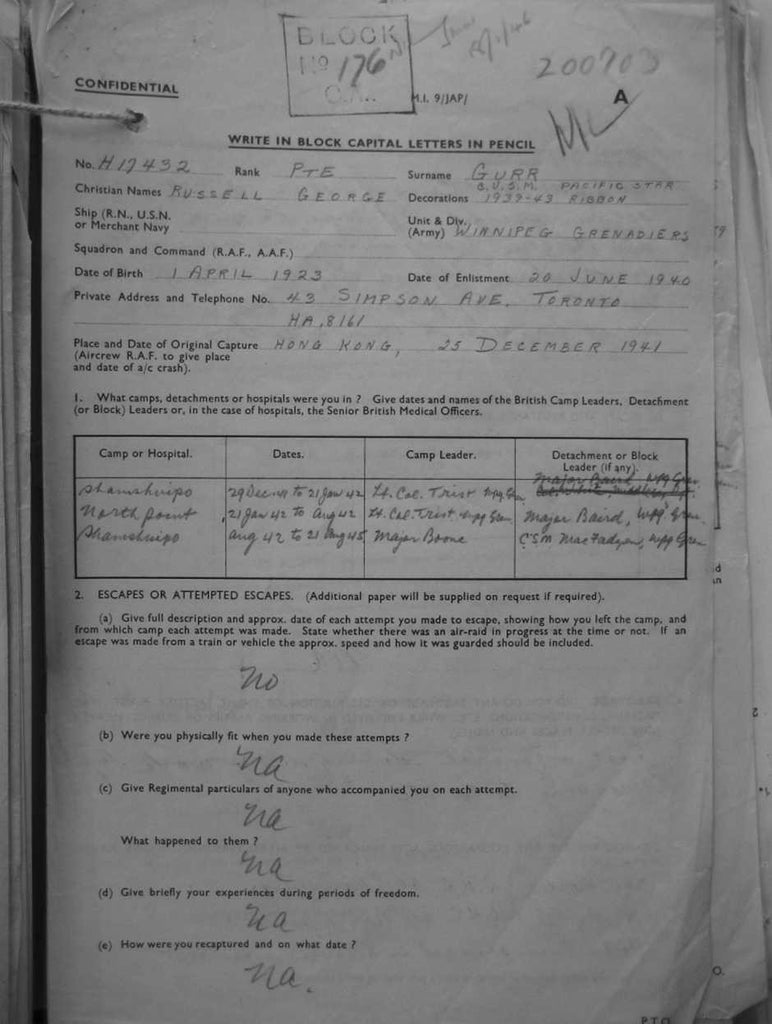 BLOCK
No 176
200703
CONFIDENTIAL
M.I. 9/JAP/
A
WRITE IN BLOCK CAPITAL LETTERS IN PENCIL
No. H17432 Rank PTE Surname GURR
C.V.S.M. PACIFIC STAR
Christian Names RUSSELL GEORGE Decorations 1939-43 RIBBON
Ship (R.N., U.S.N. or Merchant Navy
Unit & Div. (Army) WINNIPEG GRENADIERS
Squadron and Command (R.A.F., A.A.F.)
Date of Birth 1 APRIL 1923 Date of Enlistment 20 JUNE 1940
Private Address and Telephone No. 43 SIMPSON AVE, TORONTO
HA, 8161
Place and Date of Original Capture HONG KONG, 25 DECEMBER 1941
(Aircrew R.A.F. to give place
and date of a/c crash).
1. What camps, detachments or hospitals were you in ? Give dates and names of the British Camp Leaders, Detachment
(or Block) Leaders or, in the case of hospitals, the Senior British Medical Officers.
Camp or Hospital. Dates. Camp Leader. Detachment or Block
Leader (if any).
Major Baird, Wpg Gren
Shamshuipo 29 Dec 41 to 21 Jan 42 Lt. Col. Trist Wpg Gren
North point, 21 Jan 42 to Aug 42 Lt. Col. Trist Wpg Gren. Major Baird, Wpg Gren.
Shamshuipo Aug 42 to 21 Aug 45 Major Boone CSM MacFadyen, Wpg Gren
2. ESCAPES OR ATTEMPTED ESCAPES. (Additional paper will be supplied on request if required).
(a) Give full description and approx. date of each attempt you made to escape, showing how you left the camp, and
from which camp each attempt was made. State whether there was an air-raid in progress at the time or not. If an
escape was made from a train or vehicle the approx. speed and how it was guarded should be included.
No
(b) Were you physically fit when you made these attempts ?
Na
(c) Give Regimental particulars of anyone who accompanied you on each attempt.
Na
What happened to them ?
Na
(d) Give briefly your experiences during periods of freedom.
Na
(e) How were you recaptured and on what date ?
Na.
P.T.O.